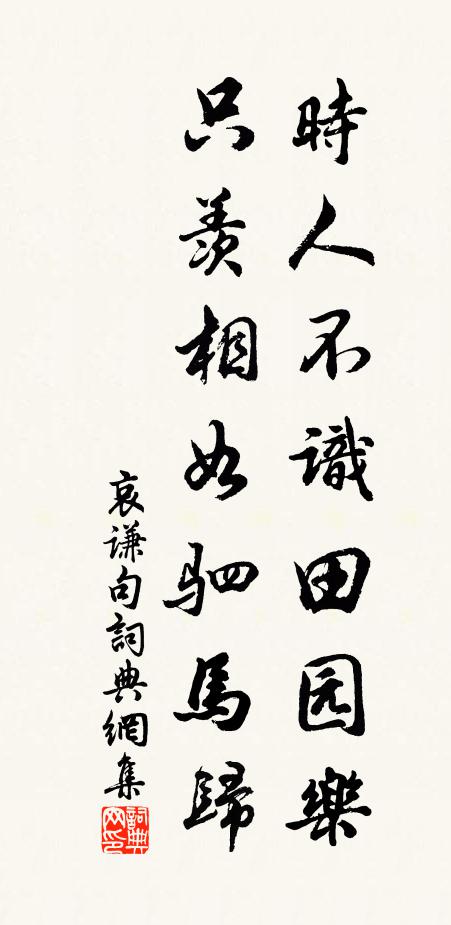 時人不識田园樂
只羨相如驷馬歸
哀謙句詞典網集
詞典
网印